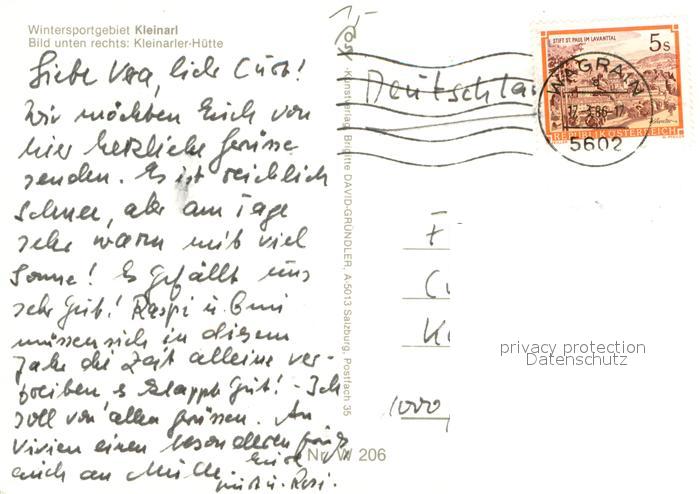 Wintersportgebiet Kleinarl
Bild unten rechts: Kleinarler-Hütte
Liebe Vera, liebe Curt!
Wir möchten Euch von
hier herzliche Grüsse
senden. Es ist reichlich
Schnee, aber am Tage
sehr warm mit viel
Sonne! Es gefällt uns
sehr gut! u.
müssen sich in diesem
Jahr die Zeit alleine ver-
treiben, es klappt gut! - Ich
soll von allen grüssen. An
Vivien einen besonderen
auch an Eure
u. Rosi.
Kunstverlag Brigitte DAVID-GRÜNDLER, A-5013 Salzburg, Postfach 35
Nr. W 206
1,-
Deutschla
STIFT ST. PAUL IM LAVANTTAL
5 S
REPUBLIK ÖSTERREICH
WAGRAIN
5602
F
C
K
1000
privacy protection
Datenschutz